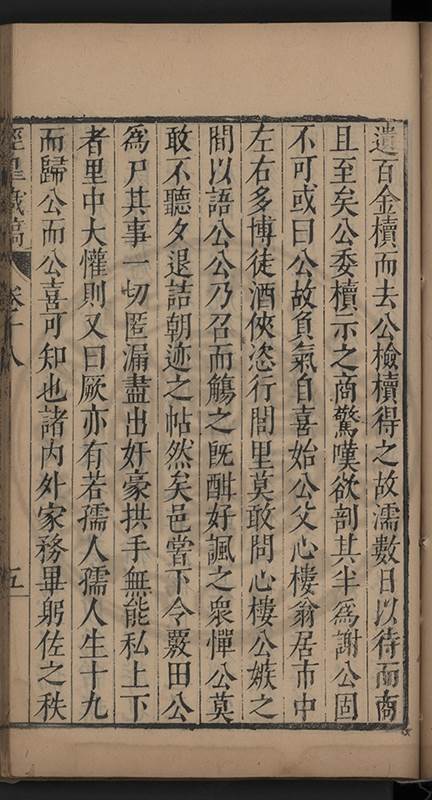 遺百金櫝而去公檢櫝得之故濡數日以待而商
且至矣公委櫝示之商驚嘆欲剖其半爲謝公固
不可或曰公故負氣自喜始公父心樓翁居市中
左右多博徒酒俠恣行閭里莫敢問心樓公嫉之
間以語公公乃召而觴之既酣好諷之衆憚公莫
敢不聽夕退詰朝迹之帖然矣邑嘗下令覈田公
爲尸其事一切匿漏盡出奸豪拱手無能私上下
者里中大懽則又曰厥亦有若孺人孺人生十九
而歸公而公喜可知也諸內外家務畢躬佐之秩
涇皋藏稿
卷十八
五